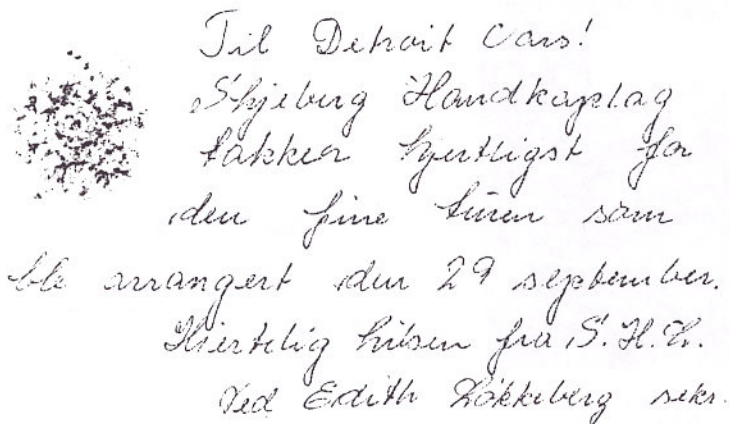 Til Detroit Cars!
Skjeberg Handikaplag
takker hjertligst for
den fine turen som
ble arrangert den 29 september.
Hjertelig hilsen fra S.H.L.
Ved Edith Løkkeberg sekr.